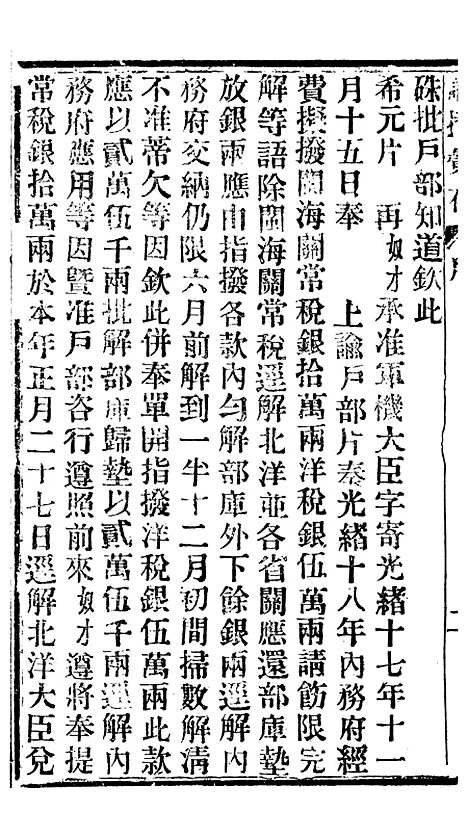 硃批戶部知道欽此
希元片 再奴才承准軍機大臣字寄光緒十七年十一
月十五日奉 上諭戶部片奏光緒十八年內務府經
費擬撥閩海關常稅銀拾萬兩洋稅銀伍萬兩請飭限完
解等語除閩海關常稅逕解北洋並各省關應還部庫墊
放銀兩應由指撥各款內勻解部庫外下餘銀兩逕解內
務府交納仍限六月前解到一半十二月初間掃數解清
不准蒂欠等因欽此併奉單開指撥洋稅銀伍萬兩此款
應以貳萬伍千兩批解部庫歸墊以貳萬伍千兩逕解內
務府應用等因暨准戶部咨行遵照前來奴才遵將奉提
常稅銀拾萬兩於本年正月二十七日逕解北洋大臣兌